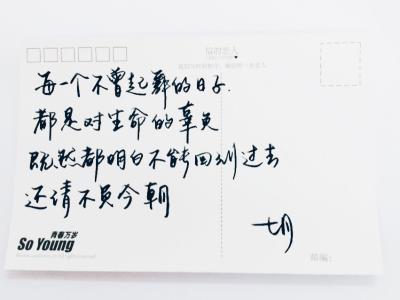 每一个不曾起舞的日子.
都是对生命的辜负
既然都明白不能回到过去
还请不负今朝
七月
青春万岁
So Young
邮编: